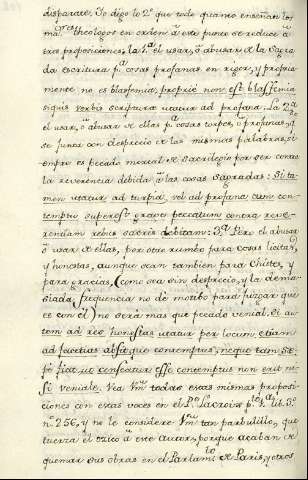 disparate. Yo digo lo 2º que todo quanto enseñan los
mas theologos en orden à este punto se reduce à
tres proposiciones, la 1ª el usar, ò abusar de la Sagra
da escritura pª cosas profanas en rigor, y propria
mente no es blasfemia, proprie non est blasfemia
siquis verbis scripturæ utatur ad profana. La 2ª
el usar, ò abusar de ellas pª cosas torpes, ò profanas, y
se junta con desprecio de las mismas palabras, si
empre es pecado mortal de sacrilegio por ser contra
la reverencia debida à las cosas sagradas: Si ta
men utatur ad turpia, vel ad profana cum con-
temptu superest grave peccatum contra reve-
rentiam rebus sacris debitam: 3ª Pero el abusar
ò usar de ellas, por otro rumbo para cosas licitas,
y honestas, aunque sean tambien para chistes, y
para gracias, (como sea sin desprecio, y la dema-
siada frequencia no dè motibo para juzgar que
le con èl) no serà mas que pecado venial. Si au
tem ad res honestas utatur per locum etiam
ad facetias absque contemptus, neque tam sæ-
pè fiat, ut censeatur esse contemptus non erit ni-
si veniale. Vea Vm todas estas mismas proposi-
ciones con estas voces en el Pe Lacroix lib. 3º
nº 256, y no le considere Vm tan parbulillo, que
tuerza el ozico à este autor, porque acaban de
quemar sus obras en el Parlamto de Paris, y otros